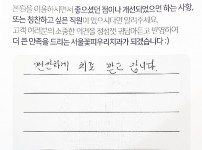 본원을 이용하시면서 좋으셨던 점이나 개선되었으면 하는 사항,
또는 칭찬하고 싶은 직원이 있으시다면 알려주세요.
고객 여러분의 소중한 의견을 정성껏 귀담아듣고 반영하여
더 큰 만족을 드리는 서울꽃피우리치과가 되겠습니다 :)
편안하게 치료 받고 갑니다.